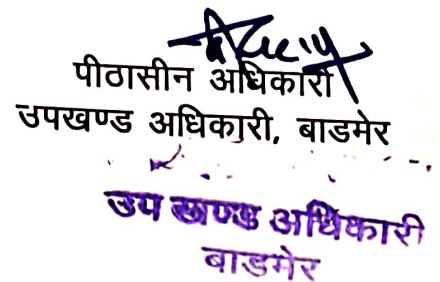 पीठासीन अधिकारी
उपखण्ड अधिकारी, बाडमेर
उप खण्ड अधिकारी
बाडमेर